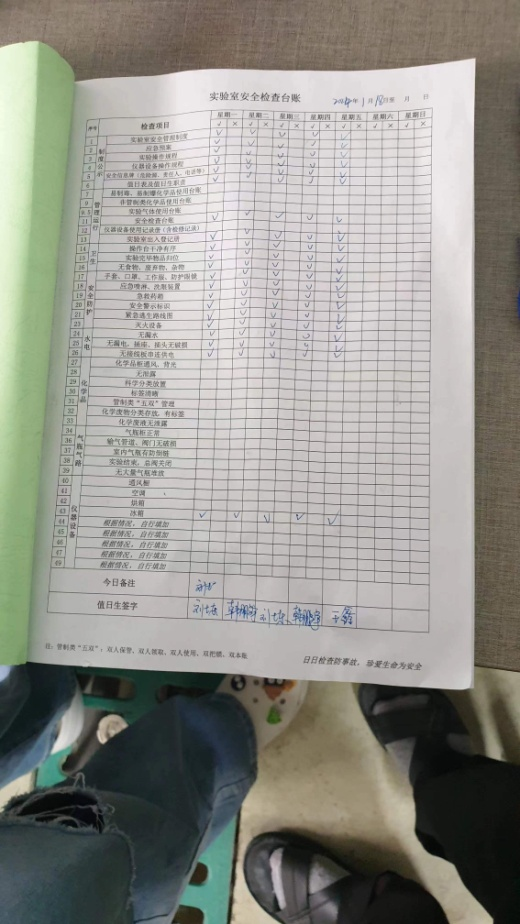 实验室安全检查台账
年1月18日至 月 日
序号 检查项目 星期一 星期二 星期三 星期四 星期五 星期六 星期日
√ × √ × √ × √ × √ × √ × √ ×
制度公示
1 实验室安全管理制度
2 应急预案
3 实验操作规程
4 仪器设备操作规程
5 安全信息牌（危险源、责任人、电话等）
6 值日表及值日生职责
管理运行
7 易制毒、易制爆化学品使用台账
8 非管制类化学品使用台账
实验气体使用台账
11 安全检查台账
12 仪器设备使用记录册（含检修记录）
13 实验室出入登记册
卫生
14 操作台干净有序
15 实验完毕物品归位
16 无食物、废弃物、杂物
安全防护
17 手套、口罩、工作服、防护眼镜
18 应急喷淋、洗眼装置
19 急救药箱
20 安全警示标识
21 紧急逃生路线图
灭火设备
水电
无漏水
25 无漏电，插座、插头无破损
26 无接线板串送供电
化学品
27 化学品柜通风、背光
28 无泄露
29 科学分类放置
30 标签清晰
31 管制类“五双”管理
32 化学废物分类存放，有标签
33 化学废液无泄露
气瓶气路
34 气瓶柜正常
35 输气管道、阀门无破损
36 室内气瓶有防倒链
37 实验结束，总阀关闭
38 无大量气瓶堆放
仪器设备
40 通风橱
41 空调
42 烘箱
43 冰箱
44 根据情况，自行填加
45 根据情况，自行填加
46 根据情况，自行填加
47 根据情况，自行填加
49 根据情况，自行填加
今日备注
值日生签字
注：管制类“五双”：双人保管、双人领取、双人使用、双把锁、双本账
日日检查防事故，珍爱生命为安全